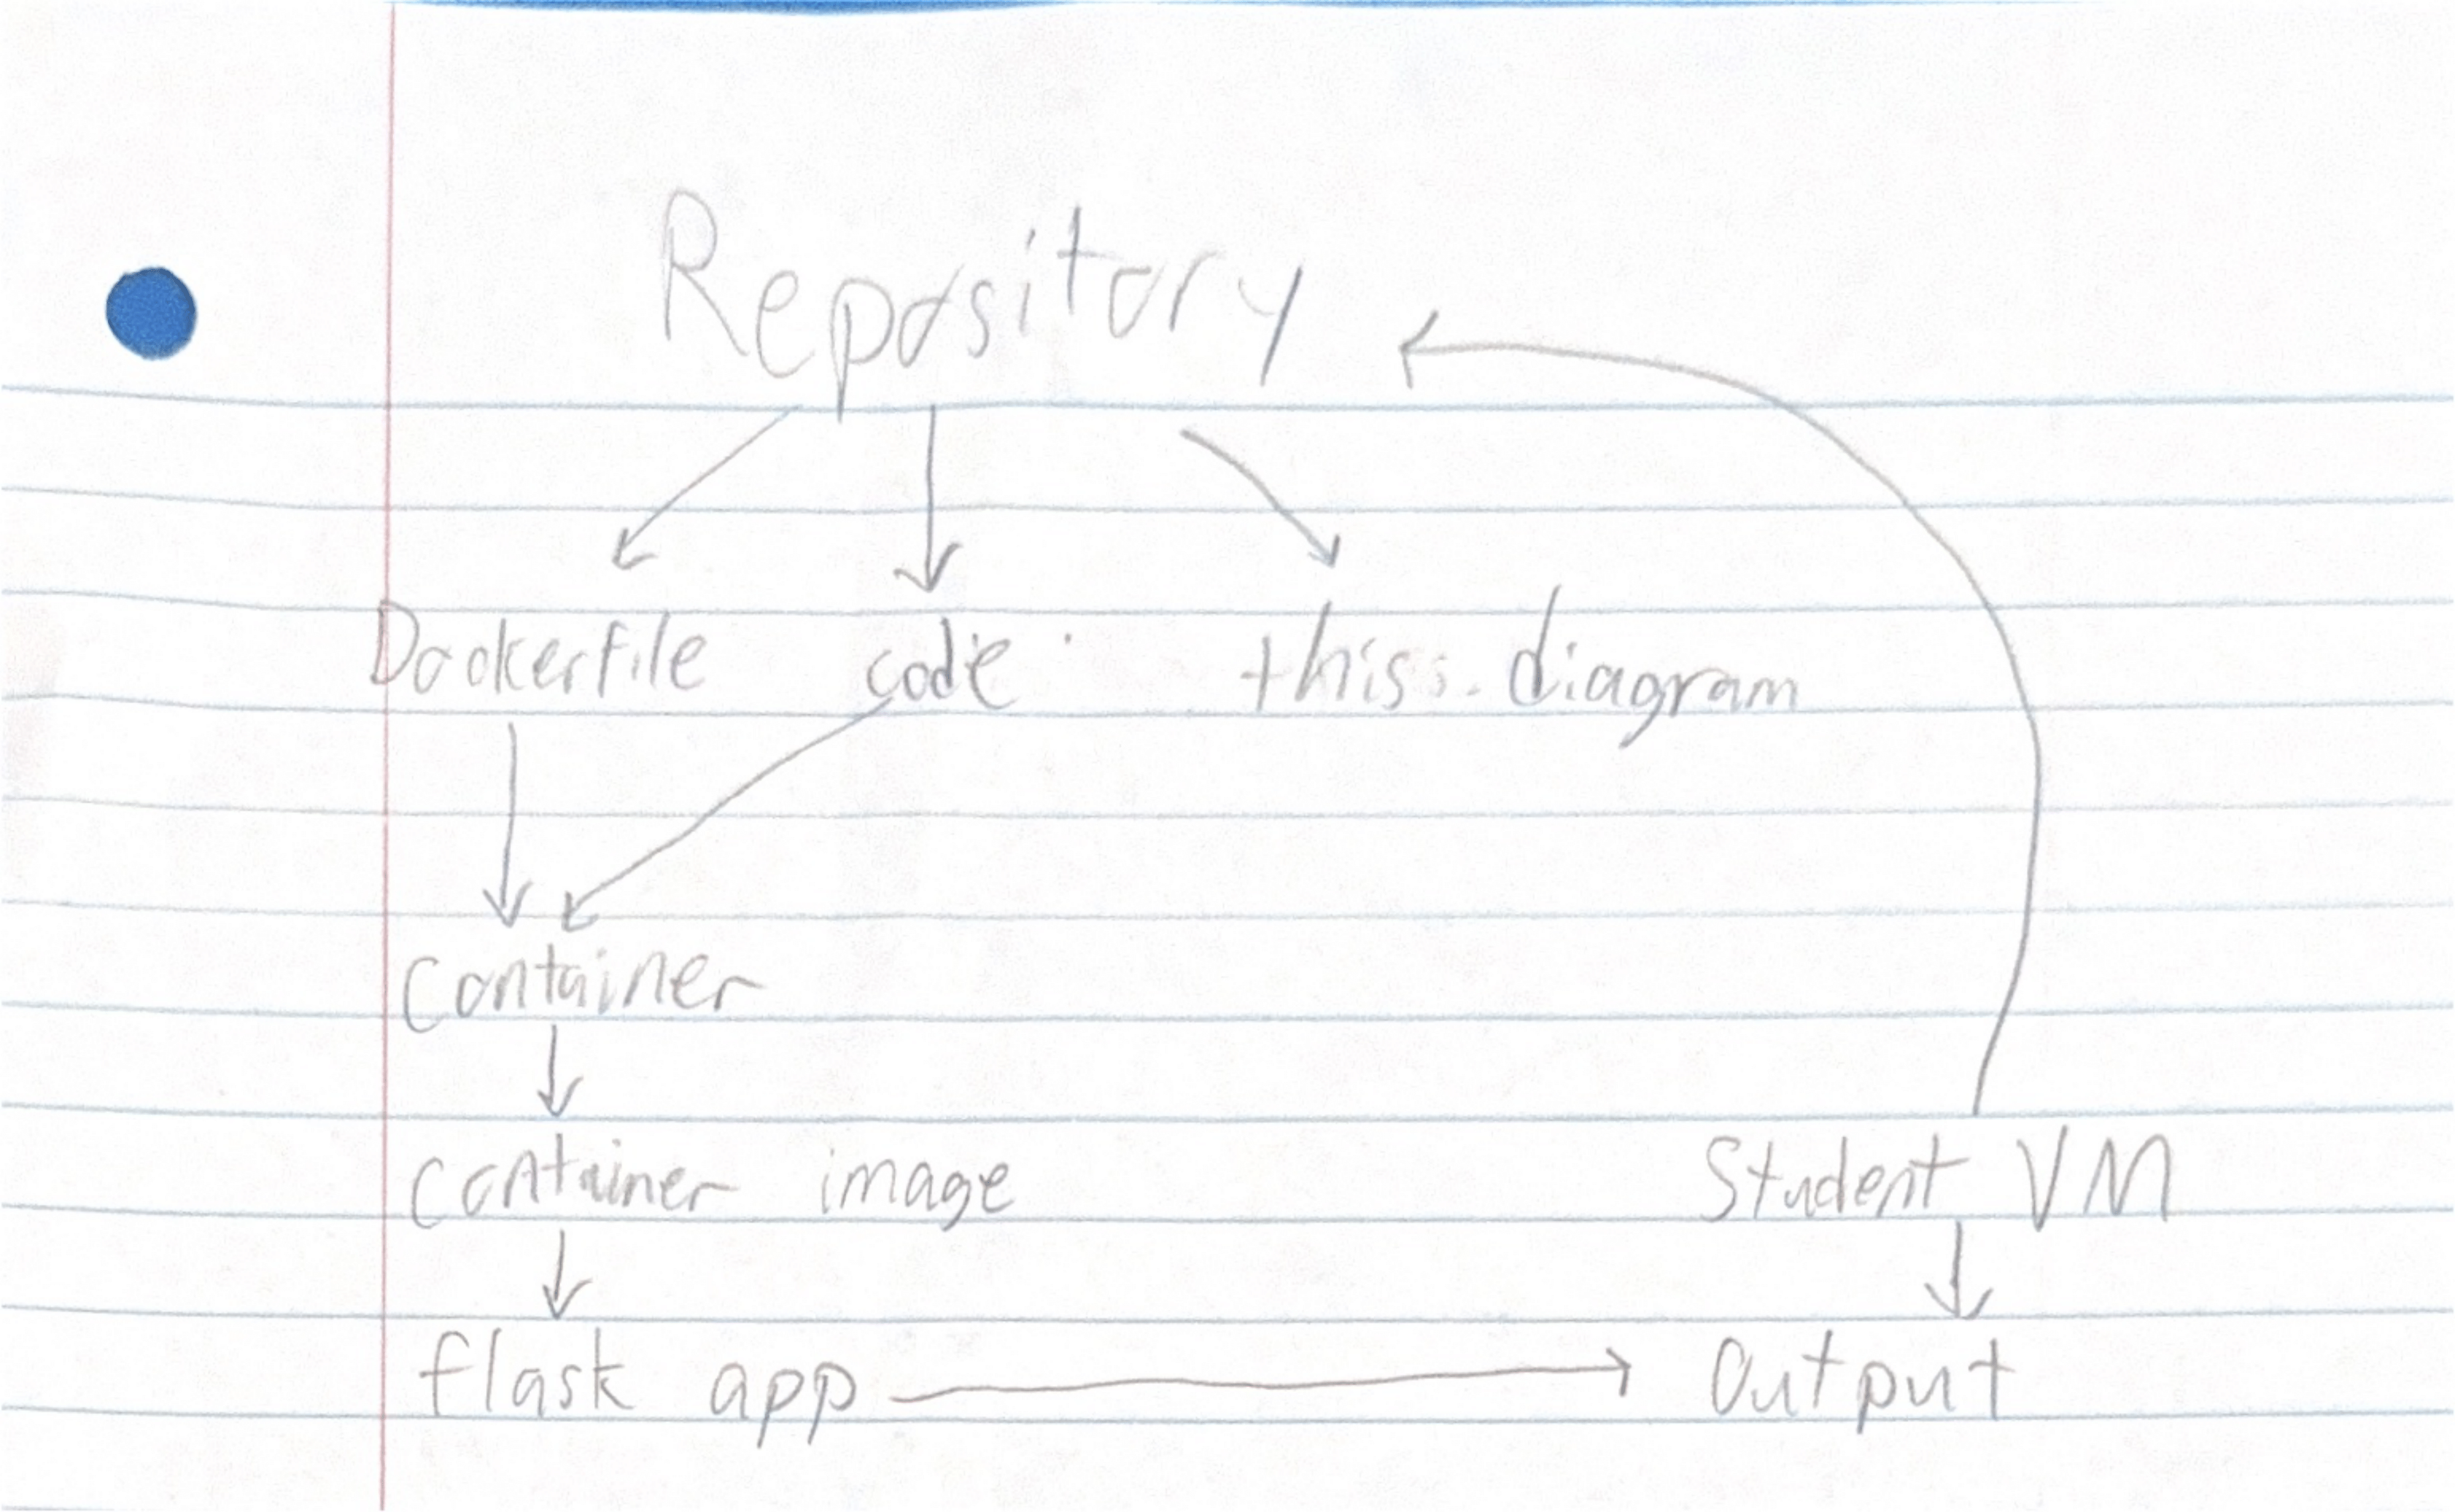 Repository
Dockerfile code this diagram
Container
Container image Student VM
flask app Output